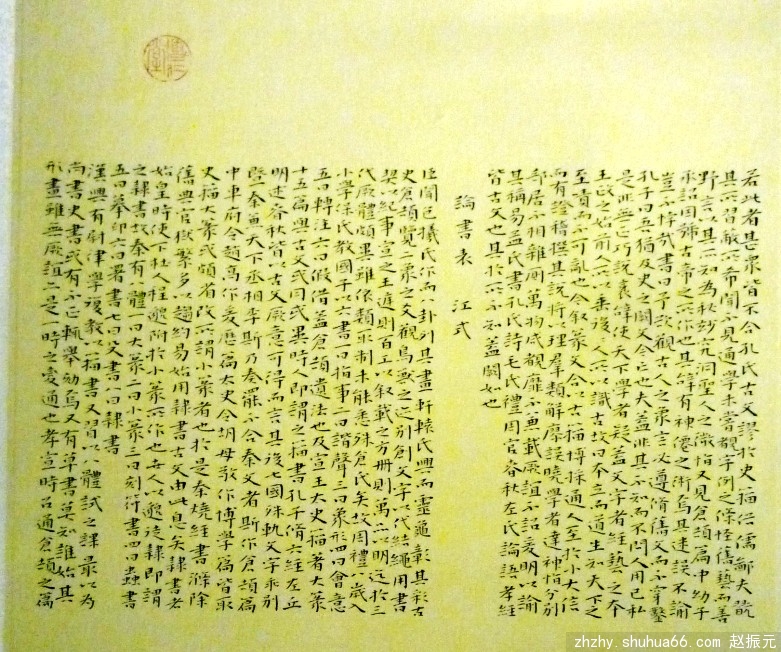 若此者甚衆皆不合孔氏古文謬於史籀俗儒鄙夫翫
其所習蔽所希聞不見通學未嘗覩字例之條怪舊藝而善
野言以其所知為秘妙究洞聖人之微恉又見倉頡篇中幼子
承詔因號古帝之所作也其辭有神僊之術焉其迷誤不諭
豈不悖哉書曰予欲觀古人之象言必遵脩舊文而不穿鑿
孔子曰吾猶及史之闕文今亡也夫蓋非其不知而不問人用己私
是非無正巧說衺辭使天下學者疑蓋文字者經藝之本
王政之始前人所以垂後人所以識古故曰本立而道生知天下之
至賾而不可亂也今敘篆文合以古籀博採通人至於小大信
而有證稽撰其說將以理羣類解謬誤曉學者達神恉分別
部居不相雜廁萬物咸覩靡不兼載厥誼不昭爰明以諭
其稱易孟氏書孔氏詩毛氏禮周官春秋左氏論語孝經
皆古文也其於所不知蓋闕如也
論書表 江式
臣聞包犧氏作而八卦列其畫軒轅氏興而靈龜彰其彩古
史倉頡覽二象之文觀鳥獸之迹別創文字以代結繩用書
契以紀事宣之王庭則百工以敘載之方冊則萬品以明迄於三
代厥體頗異雖依類取制未能悉殊倉氏矣故周禮八歲入
小學保氏教國子以六書一曰指事二曰諧聲三曰象形四曰會意
五曰轉注六曰假借蓋倉頡遺法也及宣王太史籀著大篆
十五篇與古文或同或異時人即謂之籀書孔子脩六經左丘
明述春秋皆以古文厥意可得而言其後七國殊軌文字乖別
暨秦兼天下丞相李斯乃奏罷不合秦文者斯作倉頡篇
中車府令趙高作爰歷篇太史令胡毋敬作博學篇皆取
史籀大篆或頗省改所謂小篆者也於是秦燒經書滌除
舊典官獄繁多以趨約易始用隸書古文由此息矣隸書者
始皇時使下杜人程邈附於小篆所作也世人以邈徒隸即謂
之隸書故秦有八體一曰大篆二曰小篆三曰刻符書四曰蟲書
五曰摹印六曰署書七曰殳書八曰隸書
漢興有尉律學復教以籀書又習以八體試之課最以為
尚書史書或有不正輒舉劾焉又有草書莫知誰始其
形畫雖無厥誼亦是一時之變通也孝宣時召通倉頡之篇
zhzhy.shuhua66.com 赵振元